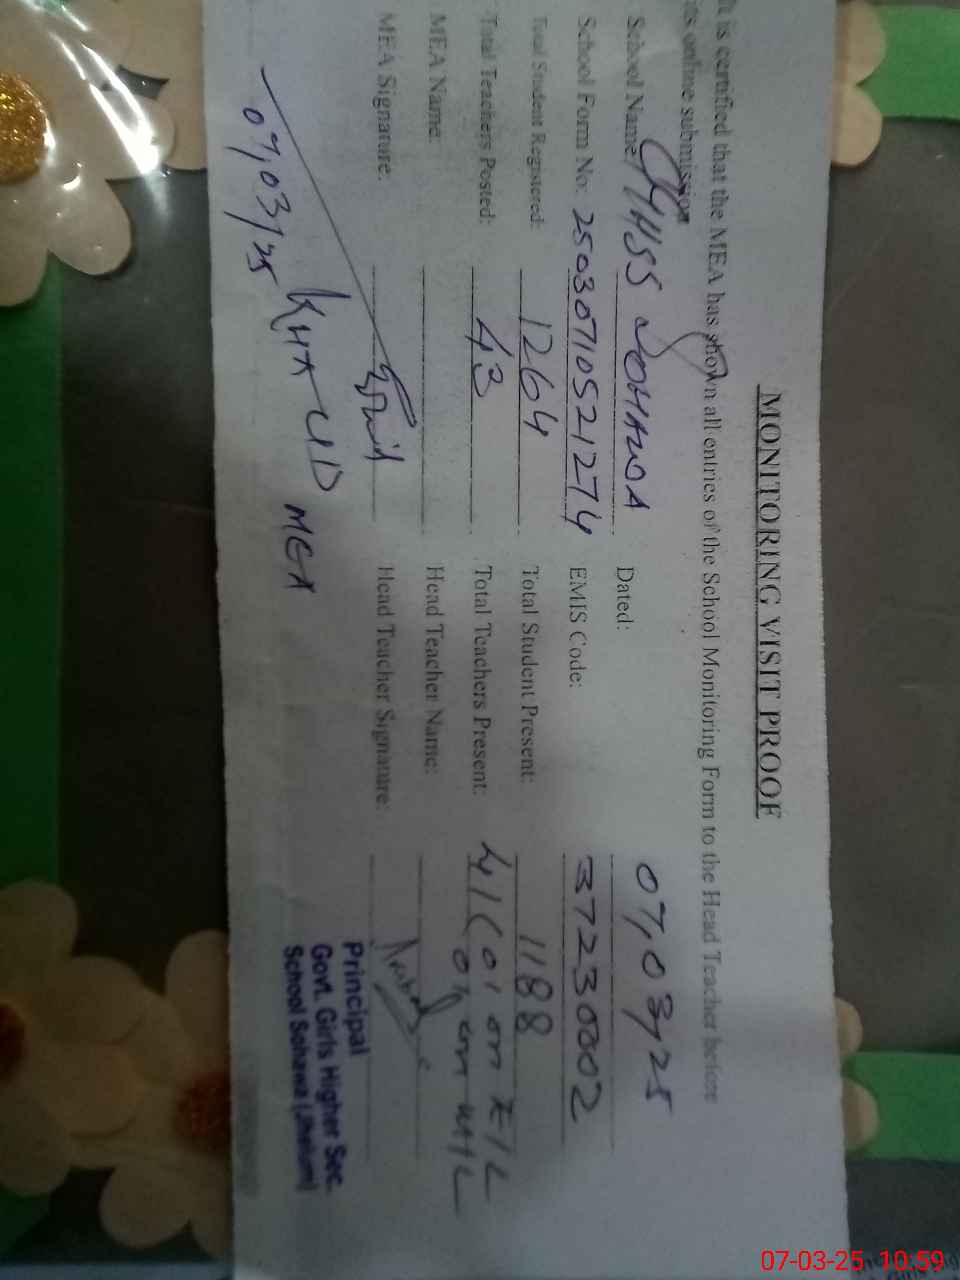 MONITORING VISIT PROOF
It is certified that the MEA has shown all entries of the School Monitoring Form to the Head Teacher before
its online submission
School Name: GGHSS SOHAWA Dated: 07,03,25
School Form No: 25030710521274 EMIS Code: 37230002
Total Student Registered: 1264 Total Student Present: 1188
Total Teachers Posted: 43 Total Teachers Present: 41 (01 on E/L
01 on M/L
MEA Name: Head Teacher Name:
MEA Signature: Head Teacher Signature:
07,03,25
MEA
Principal
Govt. Girls Higher Sec.
School Sohawa (Jhelum)
07-03-25 10:59